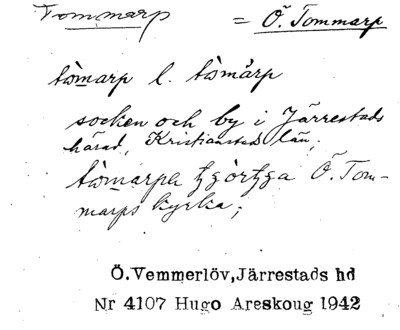 Tommarp = Ö. Tommarp
tòmarp l. tòmårp
socken och by i Järrestads
härad, Kristianstads län.
Ö. Tom-
marps kyrka;
Ö.Vemmerlöv,Järrestads hd
Nr 4107 Hugo Areskoug 1942